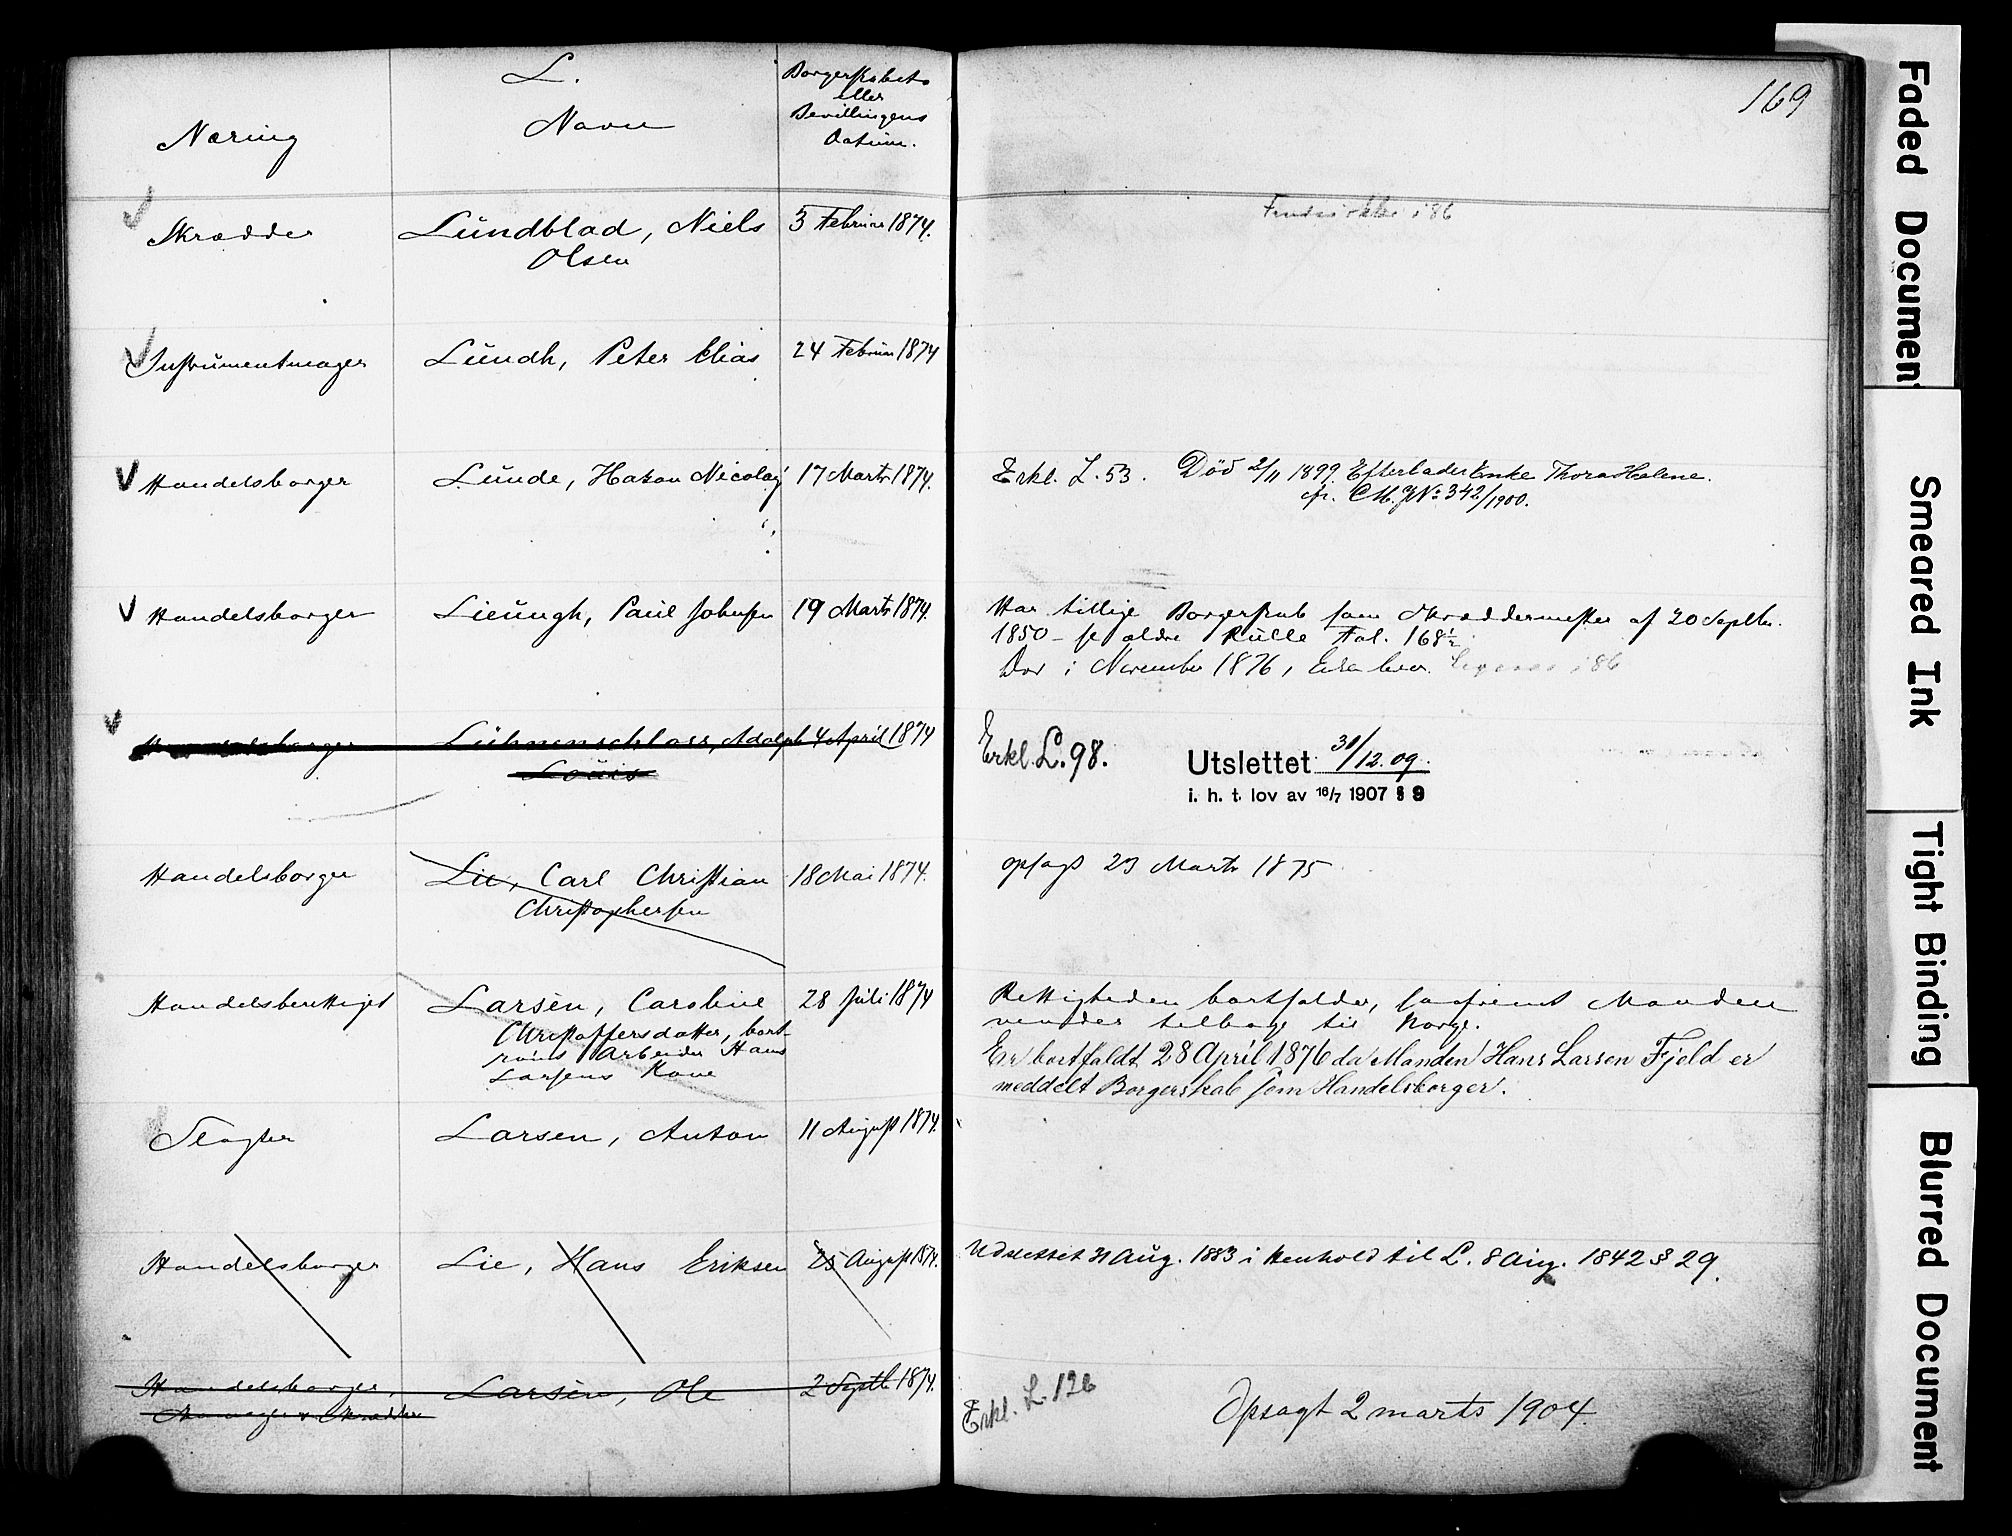 L.
169
Næring
Navn
Borgerskabets
eller
Bevillingens
Datum.
Skrædder
Lundblad, Niels
Olsen
3 Februar 1874.
i 86
Instrumentmager
Lundh, Peter Elias
24 Februar 1874
Handelsborger
Lunde, Hakon Nicolay
17 Marts 1874.
Erkl. L. 53. Død 2/11 1899. Efterlader Enke Thora Halene.
cfr. CM. JNo 342/1900.
Handelsborger
Lieungh, Paul Johnsen
19 Marts 1874.
Har tillige Borgerskab som Skræddermester af 20 Septbr.
1850 - se ældre Rulle Fol. 168½
Død i November 1876, i 86
Handelsborger
Lühnenschloss, Adolph
Louis
4 April 1874
Erkl. L. 98.
Utslettet 30/12.09.
i. h. t. lov av 16/7 1907 § 9
Handelsborger
Lie, Carl Christian
Christophersen
18 Mai 1874.
opsagt 23 Marts 1875
Handelsberettiget
Larsen, Caroline
Christoffersdatter, bort-
rømt Arbeider Hans
Larsens Kone
28 Juli 1874
Rettigheden bortfalder, saafremt Manden
vender tilbage til Norge.
Er bortfaldt 28 April 1876 da Manden Hans Larsen Fjeld er
meddelt Borgerskab som Handelsborger.
Slagter
Larsen, Anton
11 August 1874.
Handelsborger
Lie, Hans Eriksen
25 August 1874.
Udslettet 31 Aug. 1883 i Henhold til L. 8 Aug. 1842 § 29.
Handelsborger,
Skrædder
Larsen, Ole
2 Septb 1874.
Erkl. L. 126
Opsagt 2 marts 1904
Faded Document
Smeared Ink
Tight Binding
Blurred Document